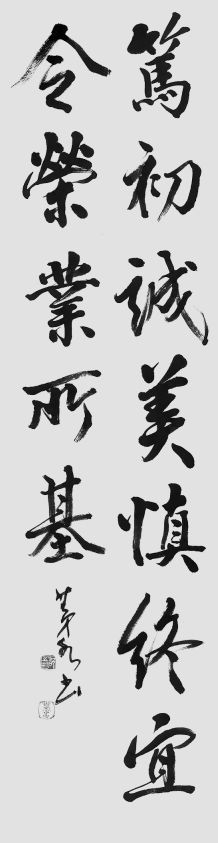 篤初誠美慎終宜
令榮業所基